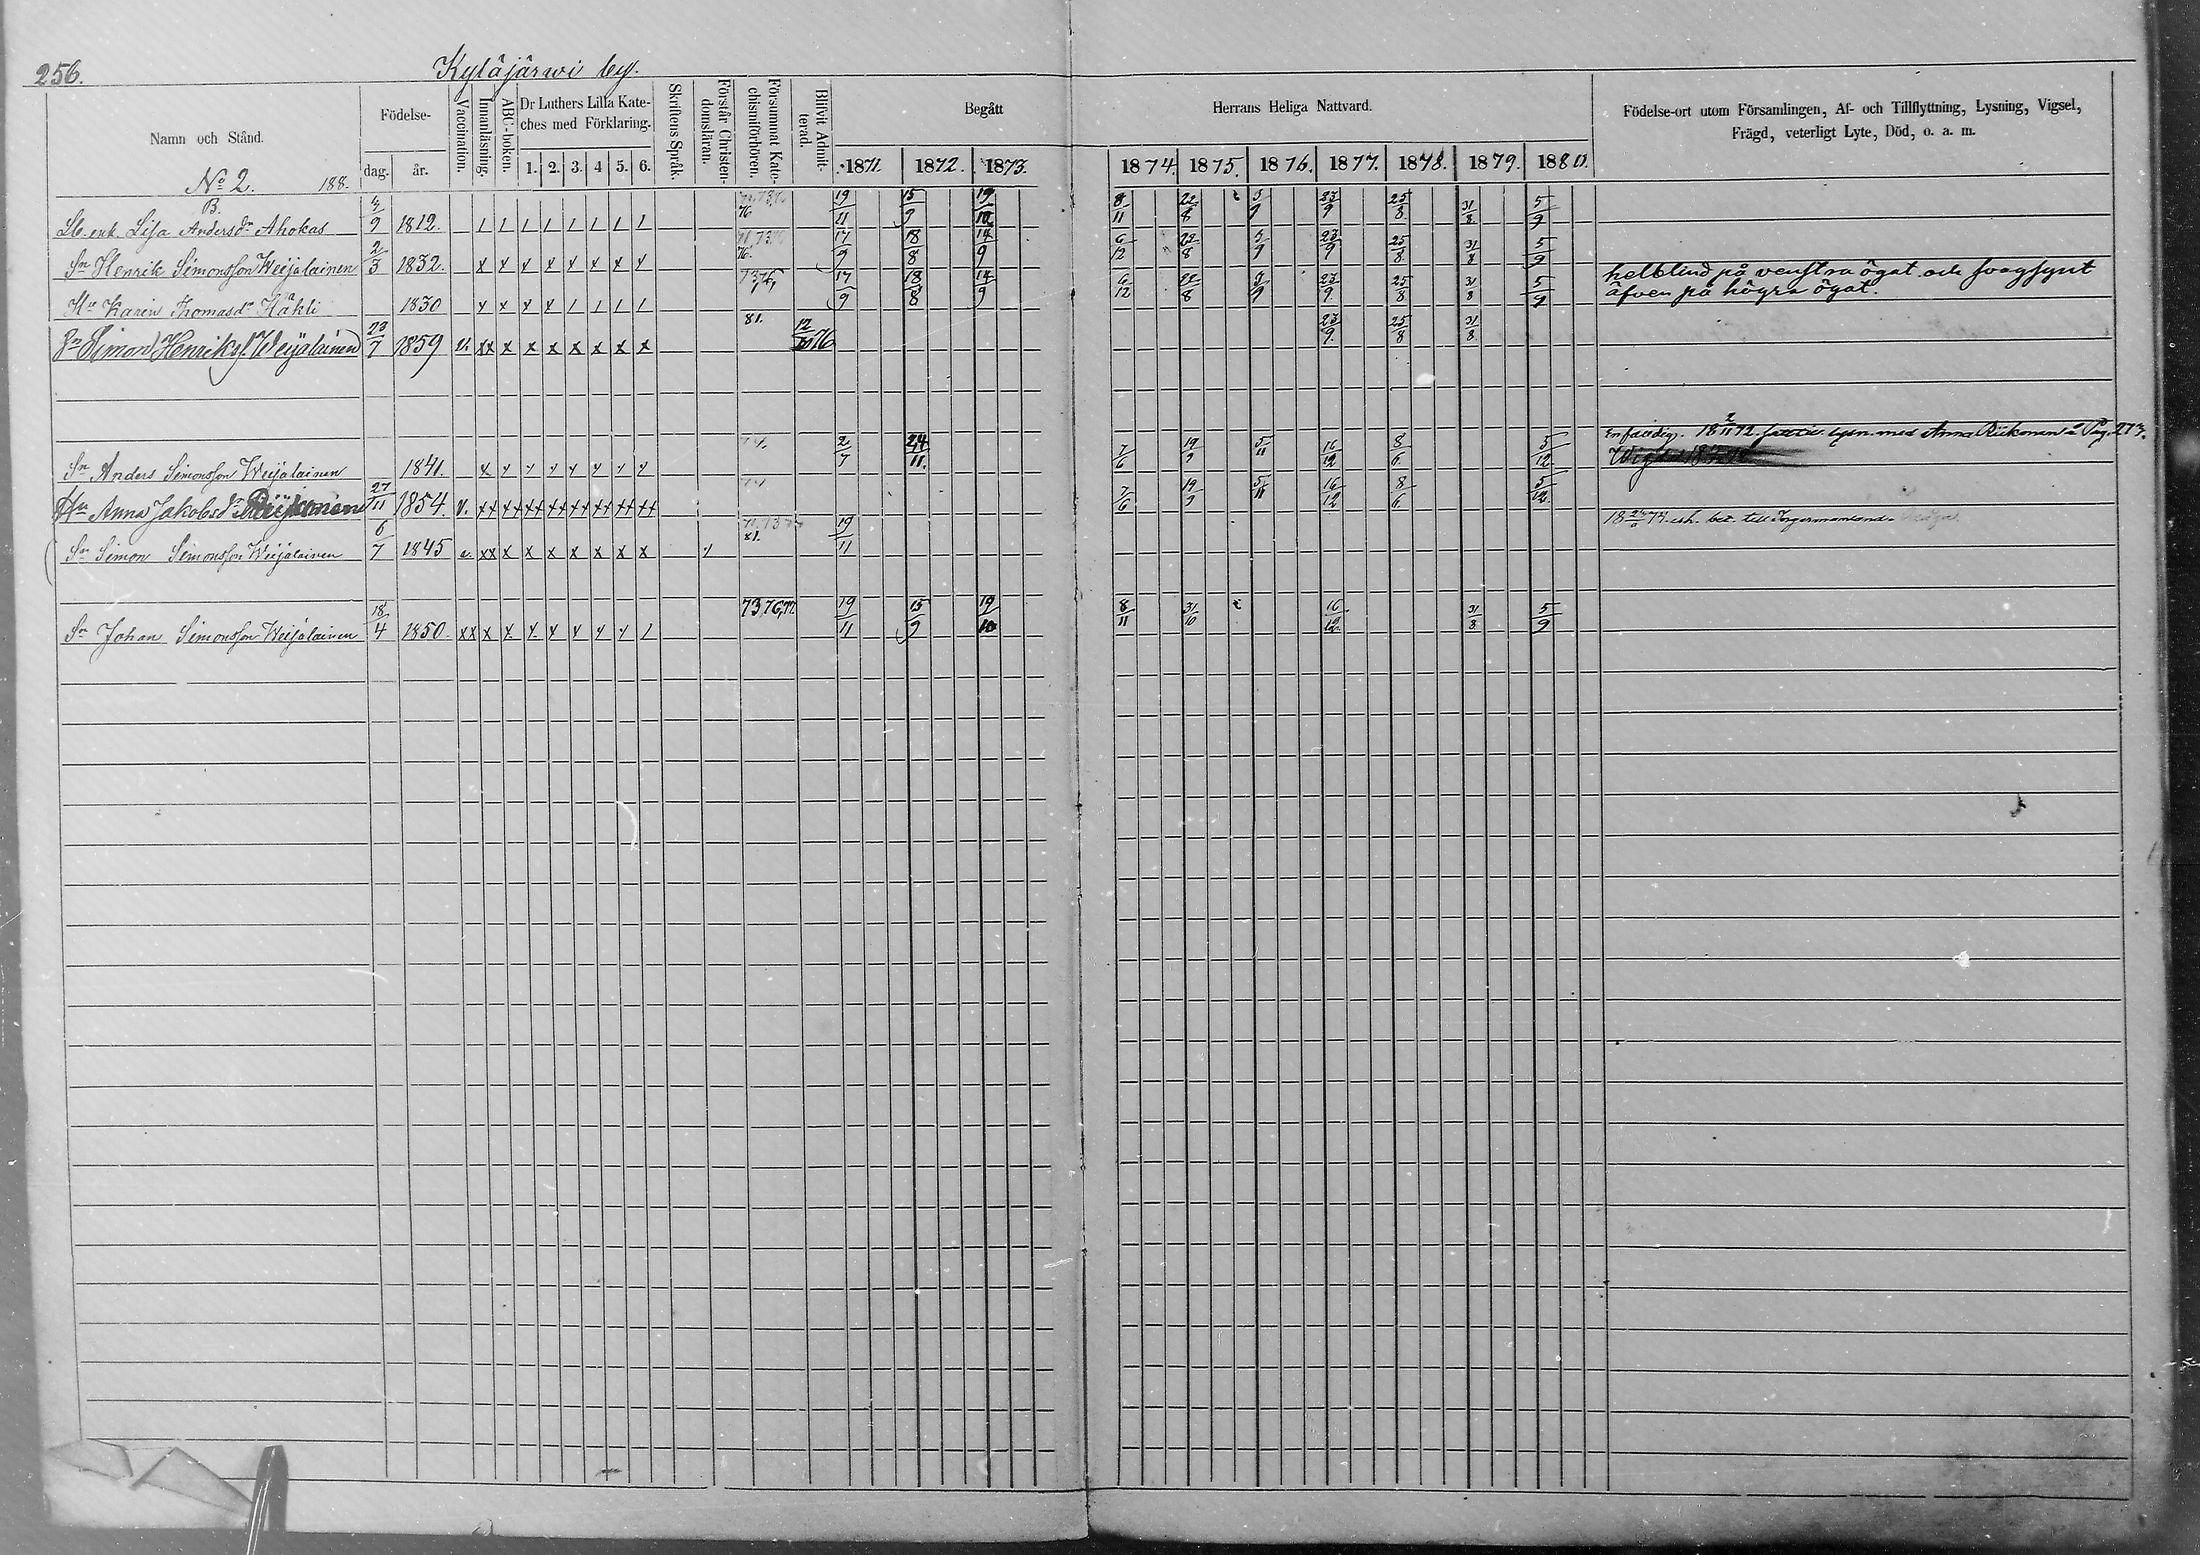 256.
Kyläjärwi by.
Namn och Stånd.
Födelse-
dag.
år.
Vaccination.
Innanläsning.
ABC-boken.
Dr Luthers Lilla Kate-
ches med Förklaring.
1. 2. 3. 4 5. 6.
Skriftens Språk.
Förstår Christen-
domsläran.
Försummat Kate-
chismiförhören.
Blifvit Admit-
terad.
Begått
1871. 1872. 1873.
Herrans Heliga Nattvard.
1874. 1875. 1876. 1877. 1878. 1879. 1880.
Födelse-ort utom Församlingen, Af- och Tillflyttning, Lysning, Vigsel,
Frägd, veterligt Lyte, Död, o. a. m.
No 2. 188.
B.
enk Lisa Andersdr Ahokas 4/9 1812. 1 1 1 1 1 1 1 1 76 19/11 15/9 19/10 8/11 22/8 5/9 23/9 25/8 31/8 5/9
Sn Henrik Simonsson Weijalainen 2/3 1832. 76. 17/9 18/8 14/9 6/12 22/8 5/9 23/9 25/8 31/8 5/9
helblind på venstra ögat och svagsynt
Hu Karin Thomasdr Häkli 1830 73,76, 17/9 18/8 14/9 6/12 22/8 5/9 23/9 25/8 31/8 5/9
äfven på högra ögat.
Sn Simon Henrikss. Weijalainen 23/7 1859 v. xx x x x x x x x 81. 12/10 76 23/9. 25/8 31/8
Enfaldig. 18 2/11 72 lysn. med Anna Riikonen å Pag. 273.
Sn Anders Simonsson Weijalainen 1841. 2/7 24/11. 7/6 19/9 5/11 16/12 8/6. 5/12
Hu Anna Jakobsdr Riikonen 27/11 1854. v. 7/6 19/9 5/11 16/12 8/6. 5/12
74 bet. till Ingermanland.
Sn Simon Simonsson Weijalainen 6/7 1845 v. xx x x x x x x x 81. 19/11
Sn Johan Simonsson Weijalainen 18/4 1850 73,76,77. 19/11 15/9 19/10 8/11 31/10 16/12 31/8 5/9